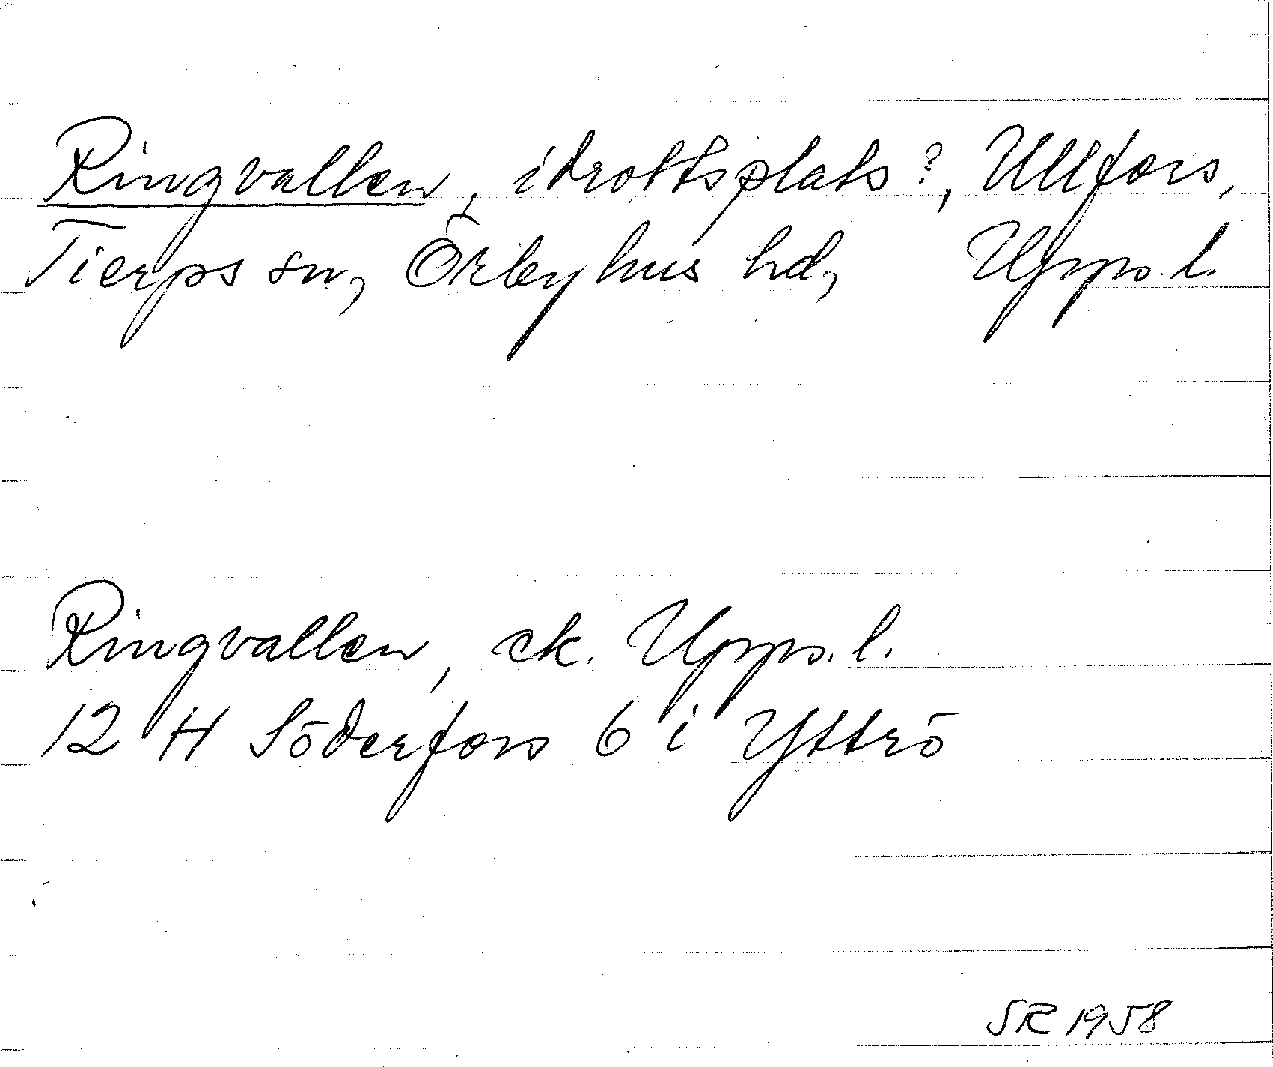 Ringvallen, idrottsplats?, Ullfors,
Tierps sn, Örbyhus hd, Upps. l.
Ringvallen, ek. Upps. l.
12 H Söderfors 6 i Yttrö
SR 1958